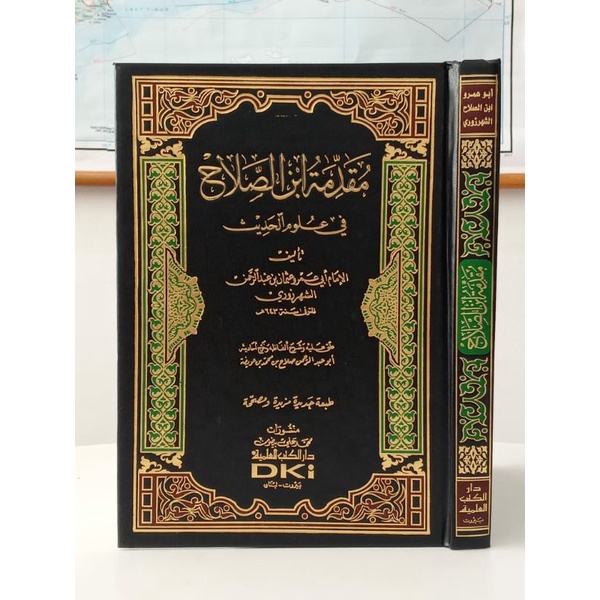 مقدمة ابن الصلاح
في علوم الحديث
تأليف
الإمام أبي عمرو عثمان بن عبد الرحمن
الشهرزوري
المتوفى سنة ٦٤٣هـ
علق عليه وشرح ألفاظه وخرج أحاديثه
أبو عبد الرحمن صلاح بن محمد بن عويضة
طبعة جديدة مزيدة ومصححة
منشورات
محمد علي بيضون
دار الكتب العلمية
DKi
بيروت - لبنان
أبو عمرو
ابن الصلاح
الشهرزوري
مقدمة ابن الصلاح
دار
الكتب
العلمية
بيروت